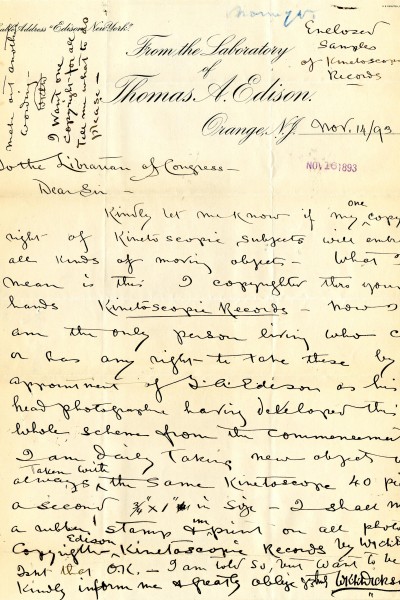 Cable Address "Edison, New York."
From the Laboratory
of
Thomas A. Edison.
Orange, N.J. Nov. 14/93
Enclosed
Samples
of Kinetoscope
Records
make out another
wording
I Want one
copyright for all
Tell me what to do
please —
NOV 16 1893
To the Librarian of Congress —
Dear Sir —
Kindly let me know if my one copy
right of Kinetoscopic subjects will
all kinds of moving objects — What
mean is this I copyrighter thro your
hands Kinetoscopic Records — now
am the only person living who
or has any right to take these by
appointment of T. A. Edison as his
head photographer having developed this
whole scheme from the commencement
I am Daily Taking new objects
Taken with
always the Same Kinetoscope 40
a second 3/4" x 1" in size — I shall
a rubber stamp & print on all
Copyright — Edison Kinetoscopic Records by
Isnt that O.K. — I am told so, but want to be
Kindly inform me & greatly oblige yours W.K.L. Dickson